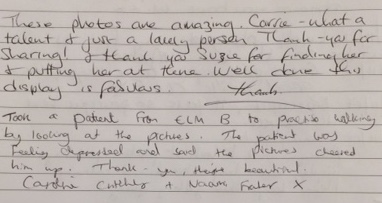 These photos are amazing. Carrie - what a
talent & just a lovely person Thank-you for
Sharing! & thank you Suzie for finding her
& putting her at there. Well done this
display is fabulous.
Took a patient from ELM B to practise walking
by looking at the pictures. The patient was
feeling depressed and said the pictures cheered
him up. Thank-you, their beautiful.
Caroline + Naomi X